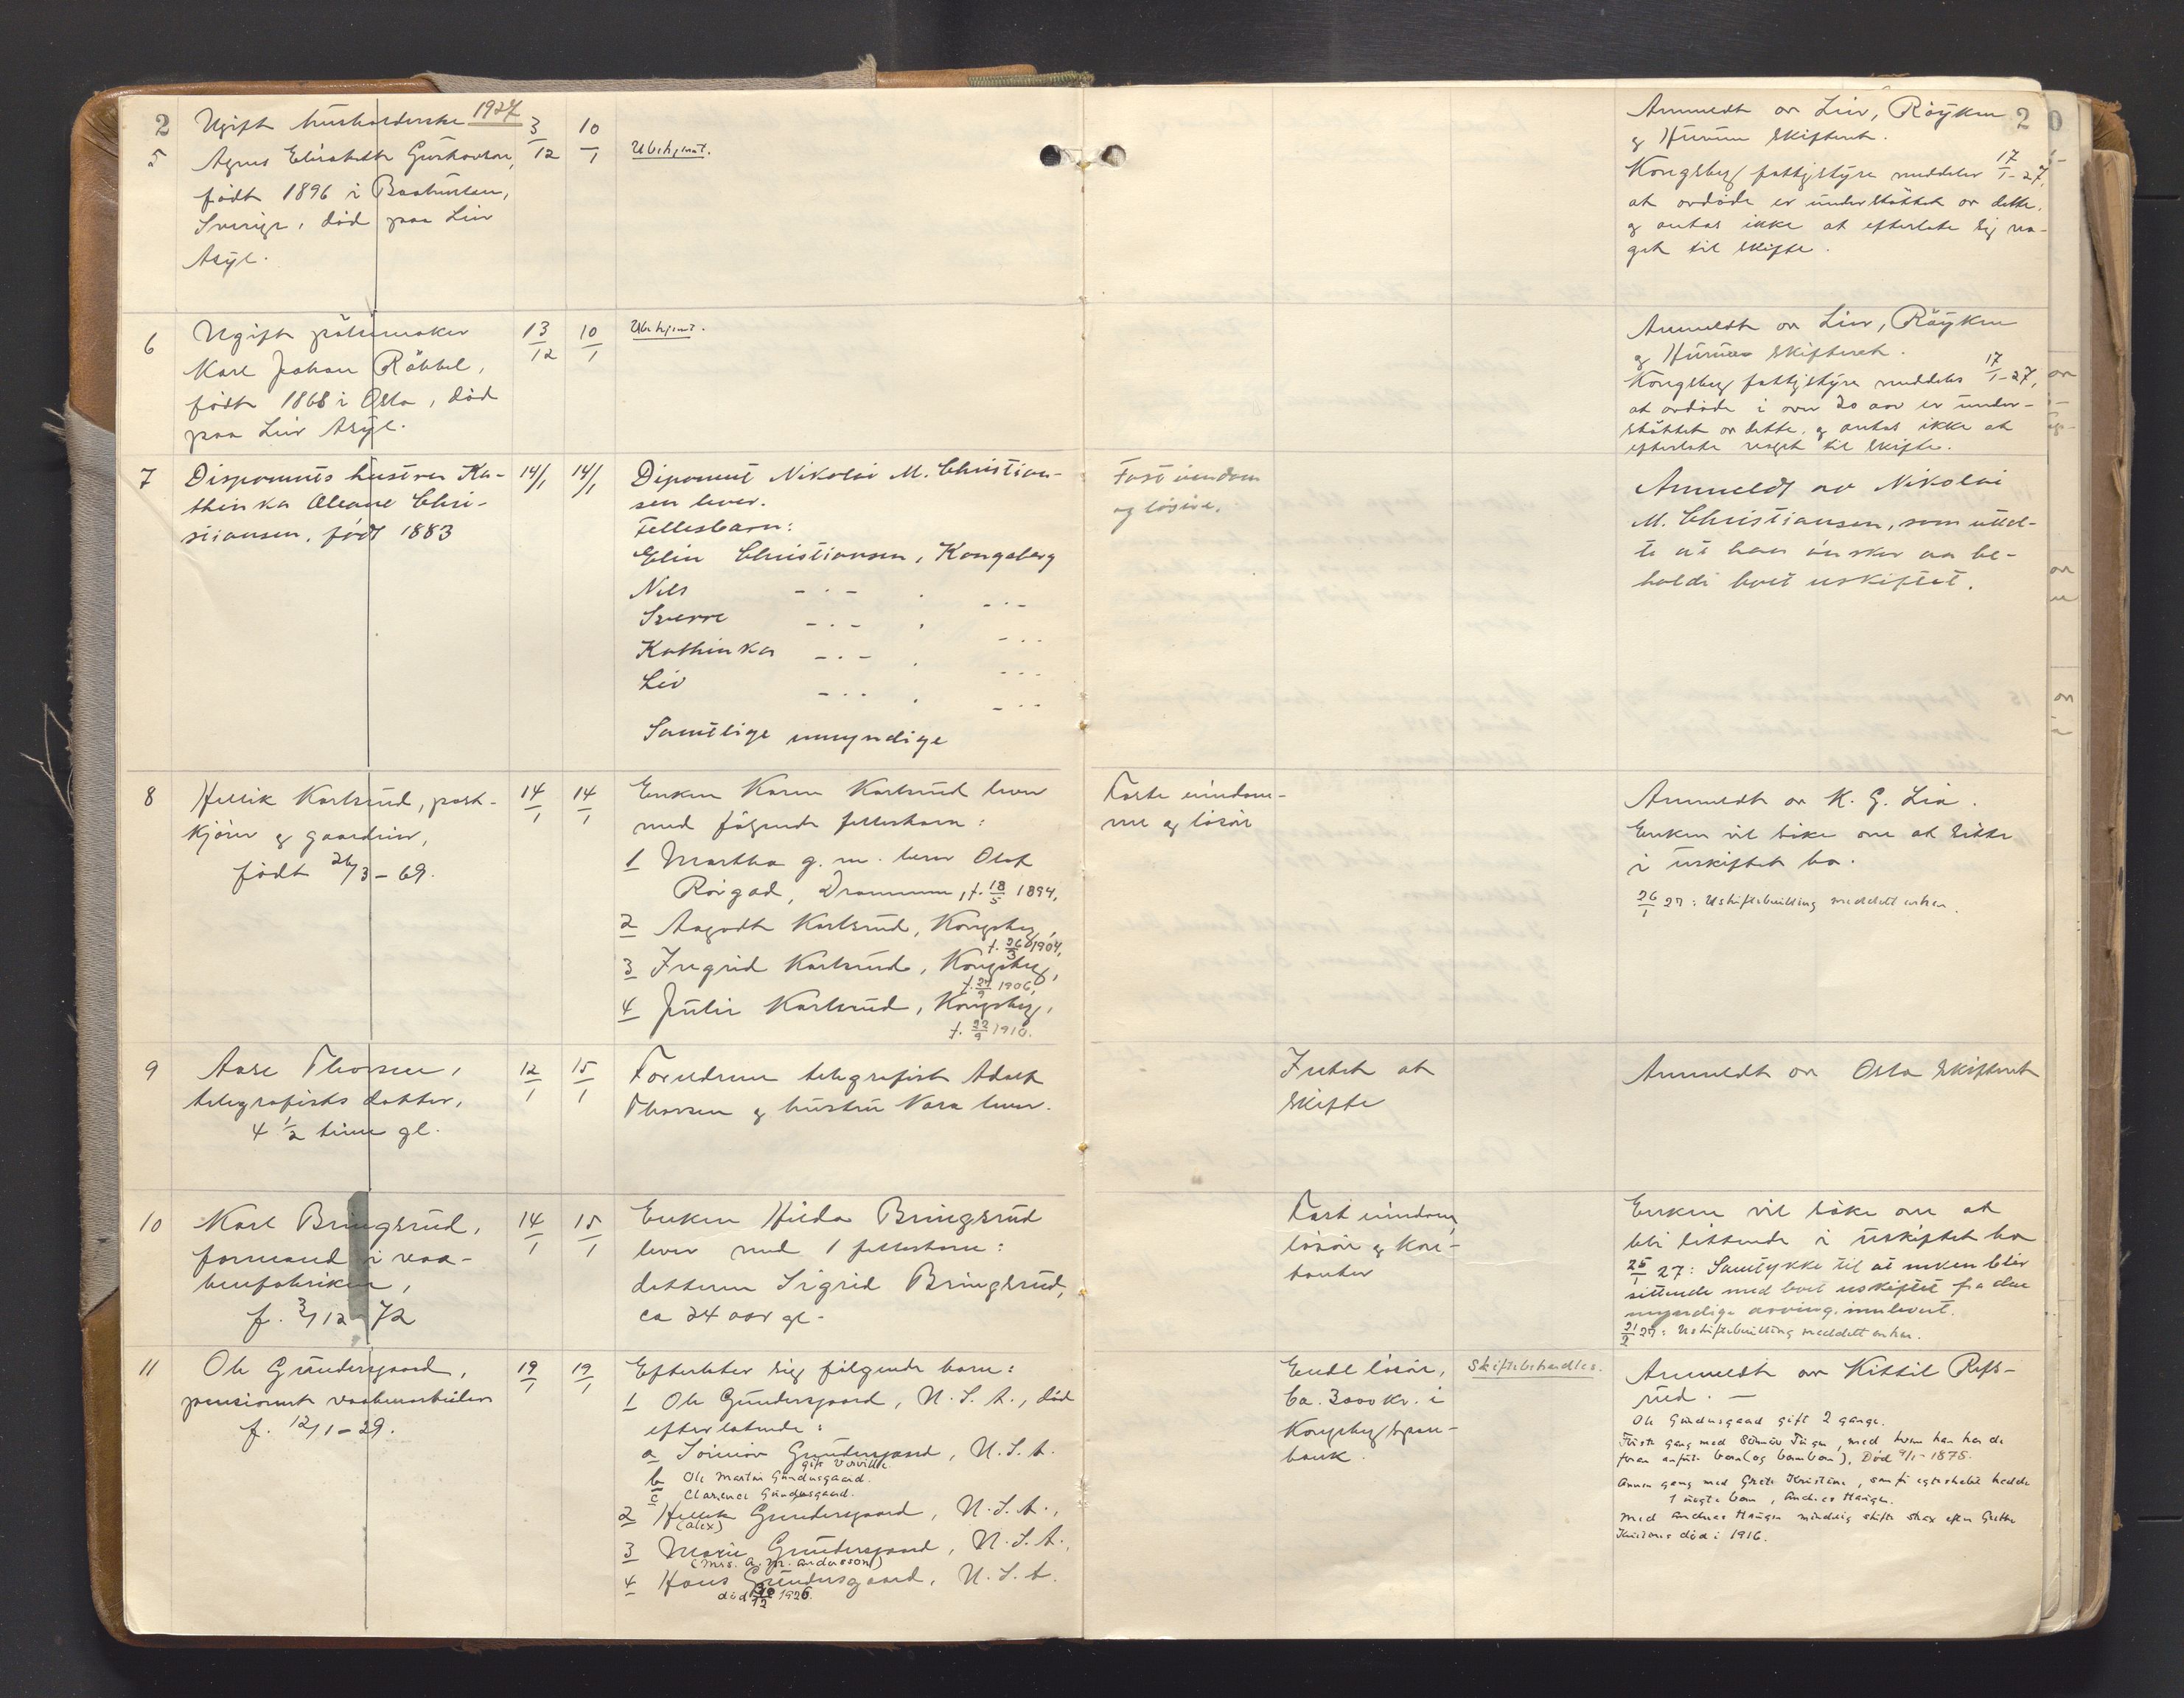 2
1927
Ugift husholderske
5
Agnes Elisabeth Gustavson,
3/12
10/1
Ubekjent.
født 1896 i Baahuslen,
Sverige, død paa Lier
Asyl.
Anmeldt av Lier, Röyken
2
og Hurum skifteret.
Kongsberg fattigstyre meddeler 17/1-27,
at avdöde er understöttet av dette,
og antas ikke at efterlate sig no-
get til skifte.
6
Ugift pölsemaker
13/12
10/1
Ubekjent.
Karl Johan
født 1868 i Oslo, död
paa Lier Asyl.
Anmeldt av Lier, Röyken
og Hurum skifteret.
Kongsberg fattigstyre meddeles 17/1-27,
at avdöde i over 20 aar er under-
stöttet av dette, og antas ikke at
efterlate noget til skifte.
7
Disponents hustru Ka-
14/1
14/1
thinka Oleane Chri-
stiansen, født 1883
Diponent Nikolai M. Christian-
sen lever.
Fellesbarn:
Elin Christiansen, Kongsberg
Nils -·- , -·-
Sverre -·- , -·-
Kathinka -·- , -·-
Liv -·- , -·-
Samtlige umyndige
Fast eiendom
og lösöre.
Anmeldt av Nikolai
M. Christiansen, som uttal-
te at han önsker aa be-
holde boet uskiftet.
8
Hellik Karlsrud, post-
14/1
14/1
kjörer og gaardeier,
født 26/3-69.
Enken Karen Karlsrud lever
med fölgende fellesbarn:
1 Martha g. m. lærer Olaf
Drammen, f. 18/5 1894,
2 Aagodt Karlsrud, Kongsberg,
f. 26/3 1904,
3 Ingrid Karlsrud, Kongsberg,
f. 27/9 1906,
4 Julie Karlsrud, Kongsberg,
f. 22/9 1910.
Faste eiendom-
me og lösöre
Anmeldt av K. G. Lia.
Enken vil söke om at sitte
i uskiftet bo.
26/1 27: Uskiftebevilling meddelt enken.
9
Aase Thorsen,
12/1
15/1
telegrafists datter,
4 1/2 time gl.
Forældrene telegrafist Adolf
Thorsen og hustru Nora lever.
Intet at
skifte
Anmeldt av Oslo skifteret
10
Karl Bringsrud,
14/1
15/1
formand i vaa-
benfabrikken,
f. 3/12-72
Enken Hilda Bringsrud
lever med 1 fellesbarn:
datteren Sigrid Bringsrud,
ca 24 aar gl.
Fast eiendom,
lösöre og kon-
tanter
Enken vil söke om at
bli sittende i uskiftet bo
25/1 27: Samtykke til at enken blir
sittende med boet uskiftet fra den
myndige arving innlevert.
21/2 27: Uskiftebevilling meddelt enken.
11
Ole Gundersgaard,
19/1
19/1
pensionert vaabenarbeider
f. 12/1-29.
Efterlater sig fölgende barn:
1 Ole Gundersgaard, U.S.A., död
efterlatende:
a Gundersgaard, U.S.A.
gift
b Ole Martin Gundersgaard.
c Clarence Gundersgaard.
2 Hellik Gundersgaard, U.S.A.,
(Alex)
3 Marie Gundersgaard, U.S.A.,
(Mrs. A. M. Andersson)
4 Hans Gundersgaard, U.S.A.
död 1926.
Endl lösöre,
Ca. 3000 kr. i
Kongsberg Spare-
bank
Skiftebehandles.
Anmeldt av Kittil Refs-
rud. —
Ole Gundersgaard gift 2 gange.
Förste gang med med hvem han har de
foran anförte barn (og barnebarn), Död 9/1-1875.
Annen gang med Grete Kristine, som för egteskabet hadde
1 uegte barn, Andreas Haugen.
Med Andreas Haugen mindelig skifte strax efter Grethe
Kristines död i 1916.